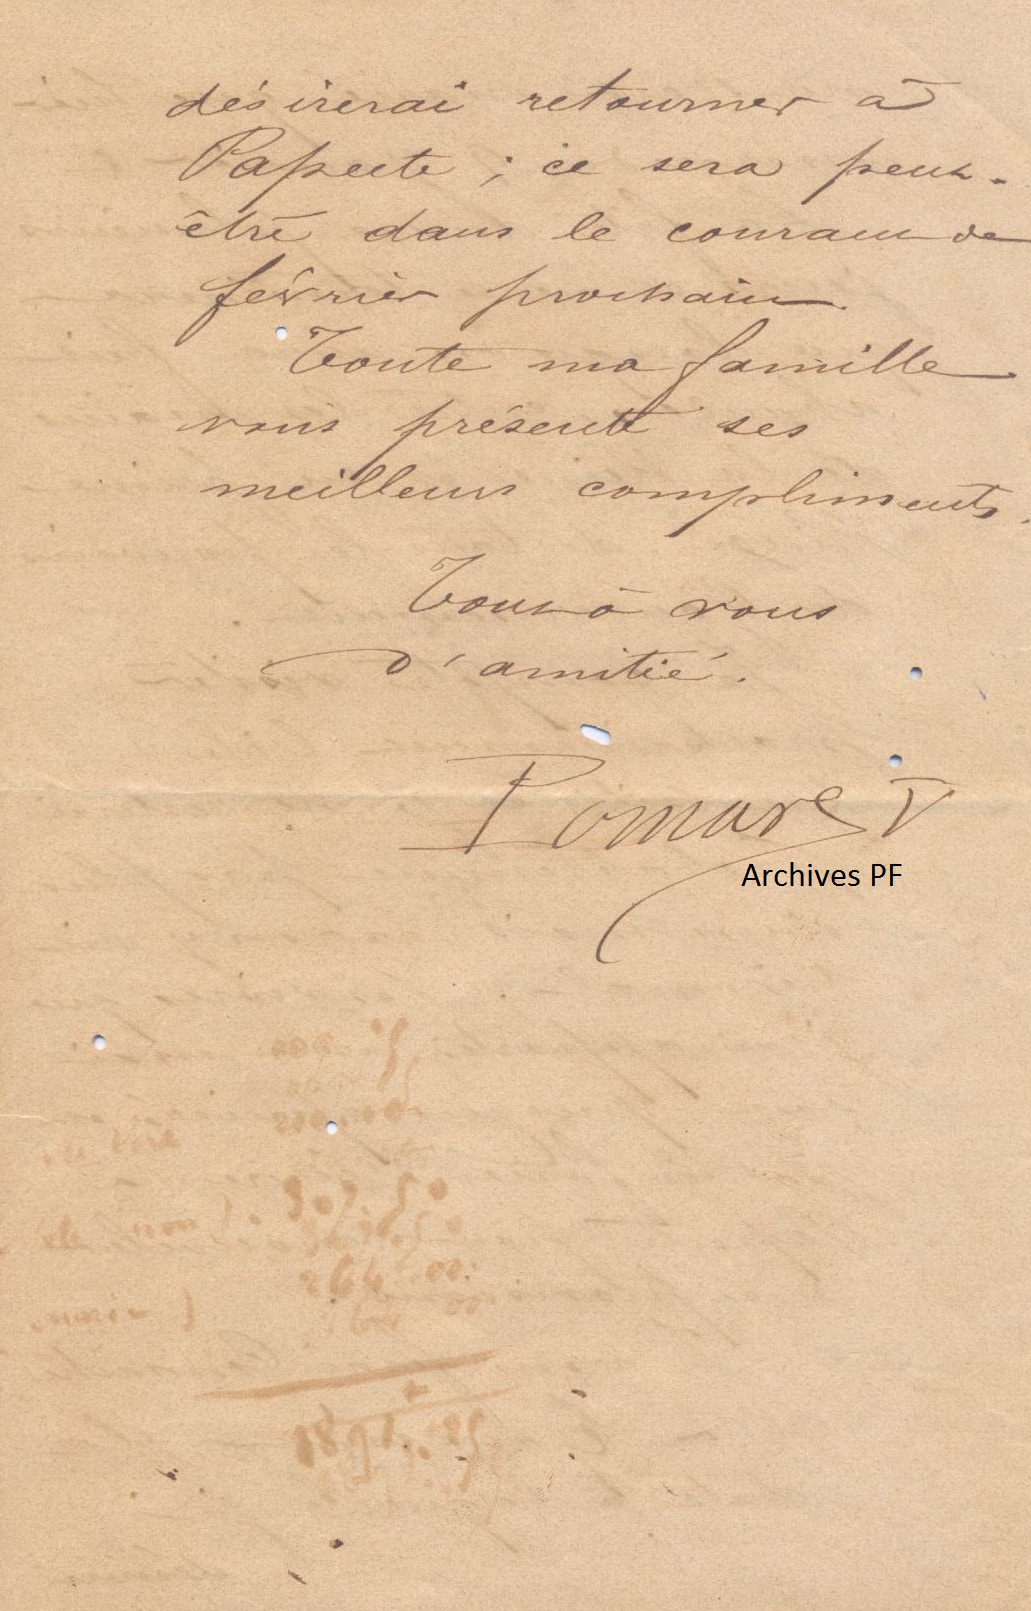 désirerai retourner à
Papeete ; ce sera peut-
être dans le courant de
février prochain.
Toute ma famille
vous présente ses
meilleurs compliments.
Tout à vous
d'amitié.
Pomare V
Archives PF